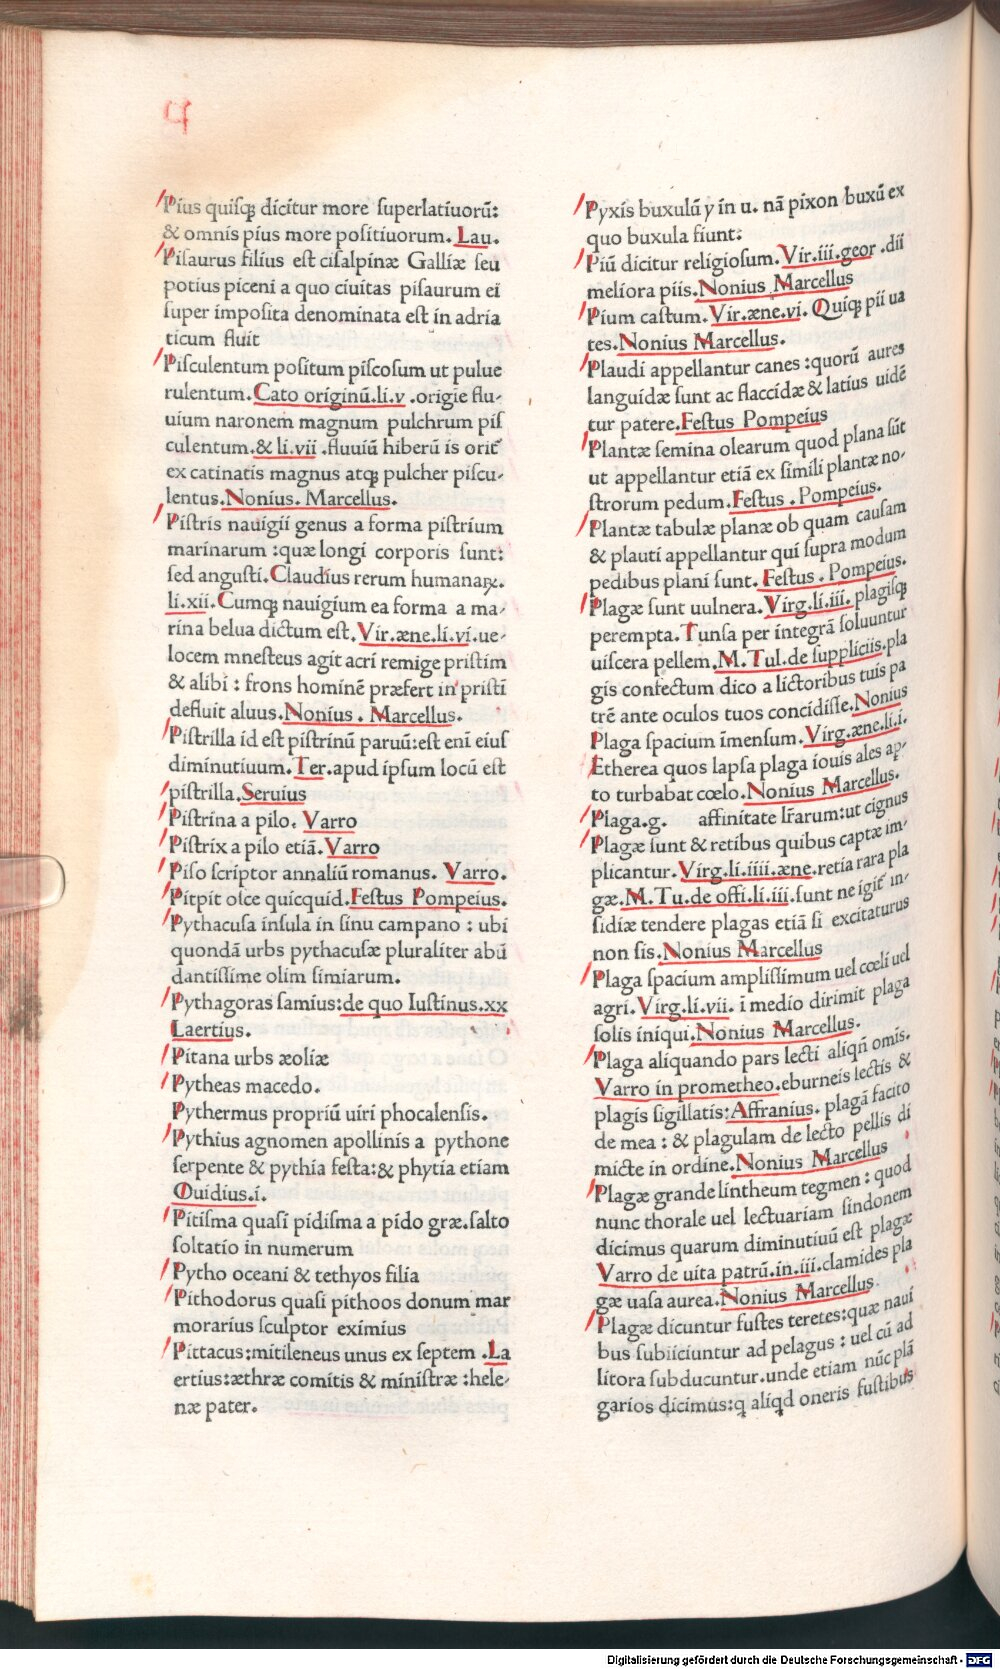 P
Pius quisq; dicitur more superlatiuorũ:
& omnis pius more positiuorum. Lau.
Pisaurus filius est cisalpinæ Galliæ seu
potius piceni a quo ciuitas pisaurum ei
super imposita denominata est in adria
ticum fluit
Pisculentum positum piscosum ut pulue
rulentum. Cato originũ.li.v .origie flu-
uium naronem magnum pulchrum pis
culentum.& li.vii .fluuiũ hiberũ is orit᷑
ex catinatis magnus atq; pulcher piscu-
lentus. Nonius. Marcellus.
Pistris nauigii genus a forma pistrium
marinarum :quæ longi corporis sunt:
sed angusti. Claudius rerum humanaꝝ.
li.xii. Cumq; nauigium ea forma a ma-
rina belua dictum est. Vir.æne.li.vi.ue-
locem mnesteus agit acri remige pristim
& alibi : frons hominẽ præfert in pristĩ
defluit aluus. Nonius . Marcellus.
Pistrilla id est pistrinũ paruũ:est enĩ eius
diminutiuum. Ter.apud ipsum locũ est
pistrilla. Seruius
Pistrina a pilo. Varro
Pistrix a pilo etiã. Varro
Piso scriptor annaliũ romanus. Varro.
Pitpit osce quicquid. Festus Pompeius.
Pythacusa insula in sinu campano : ubi
quondã urbs pythacusæ pluraliter abũ
dantissime olim simiarum.
Pythagoras samius:de quo Iustinus.xx
Laertius.
Pitana urbs æoliæ
Pytheas macedo.
Pythermus propriũ uiri phocalensis.
Pythius agnomen apollinis a pythone
serpente & pythia festa:& phytia etiam
Ouidius.i.
Pitisma quasi pidisma a pido græ.salto
soltatio in numerum
Pytho oceani & tethyos filia
Pithodorus quasi pithoos donum mar
morarius sculptor eximius
Pittacus:mitileneus unus ex septem .La
ertius:æthræ comitis & ministræ :hele-
næ pater.
Pyxis buxulũ y in u. nã pixon buxũ ex
quo buxula fiunt:
Piũ dicitur religiosum. Vir.iii.geor .dii
meliora piis. Nonius Marcellus
Pium castum. Vir.æne.vi. Quiq; pii ua
tes. Nonius Marcellus.
Plaudi appellantur canes :quorũ aures
languidæ sunt ac flaccidæ & latius uidẽ
tur patere. Festus Pompeius
Plantæ semina olearum quod plana sũt
ut appellantur etiã ex simili plantæ no-
strorum pedum. Festus . Pompeius.
Plantæ tabulæ planæ ob quam causam
& plauti appellantur qui supra modum
pedibus plani sunt. Festus . Pompeius.
Plagæ sunt uulnera. Virg.li.iii. plagisq;
perempta. Tunsa per integrã soluuntur
uiscera pellem. M. Tul.de suppliciis.pla
gis confectum dico a lictoribus tuis pa
trẽ ante oculos tuos concidisse. Nonius
Plaga spacium ĩmensum. Virg.æne.li.i.
Etherea quos lapsa plaga iouis ales ap-
to turbabat cœlo. Nonius Marcellus.
Plaga.g. affinitate lr̃arum:ut cignus
Plagæ sunt & retibus quibus captæ im-
plicantur. Virg.li.iiii.æne.retia rara pla
gæ. M. Tu.de offi.li.iii.sunt ne igit᷑ in-
sidiæ tendere plagas etiã si excitaturus
non sis. Nonius Marcellus
Plaga spacium amplissimum uel cœli uel
agri. Virg.li.vii. ĩ medio dirimit plaga
solis iniqui. Nonius Marcellus.
Plaga aliquando pars lecti aliqñ omis.
Varro in prometheo.eburneis lectis &
plagis sigillatis: Affranius. plagã facito
de mea : & plagulam de lecto pellis di
micte in ordine. Nonius Marcellus
Plagæ grande lintheum tegmen : quod
nunc thorale uel lectuariam sindonem
dicimus quarum diminutiuũ est plagæ
Varro de uita patrũ.in.iii.clamides pla
gæ uasa aurea. Nonius Marcellus
Plagæ dicuntur fustes teretes:quæ naui
bus subiiciuntur ad pelagus : uel cũ ad
litora subducuntur.unde etiam nũc plã
garios dicimus:q aliqd oneris fustibus
Digitalisierung gefördert durch die Deutsche Forschungsgemeinschaft - DFG